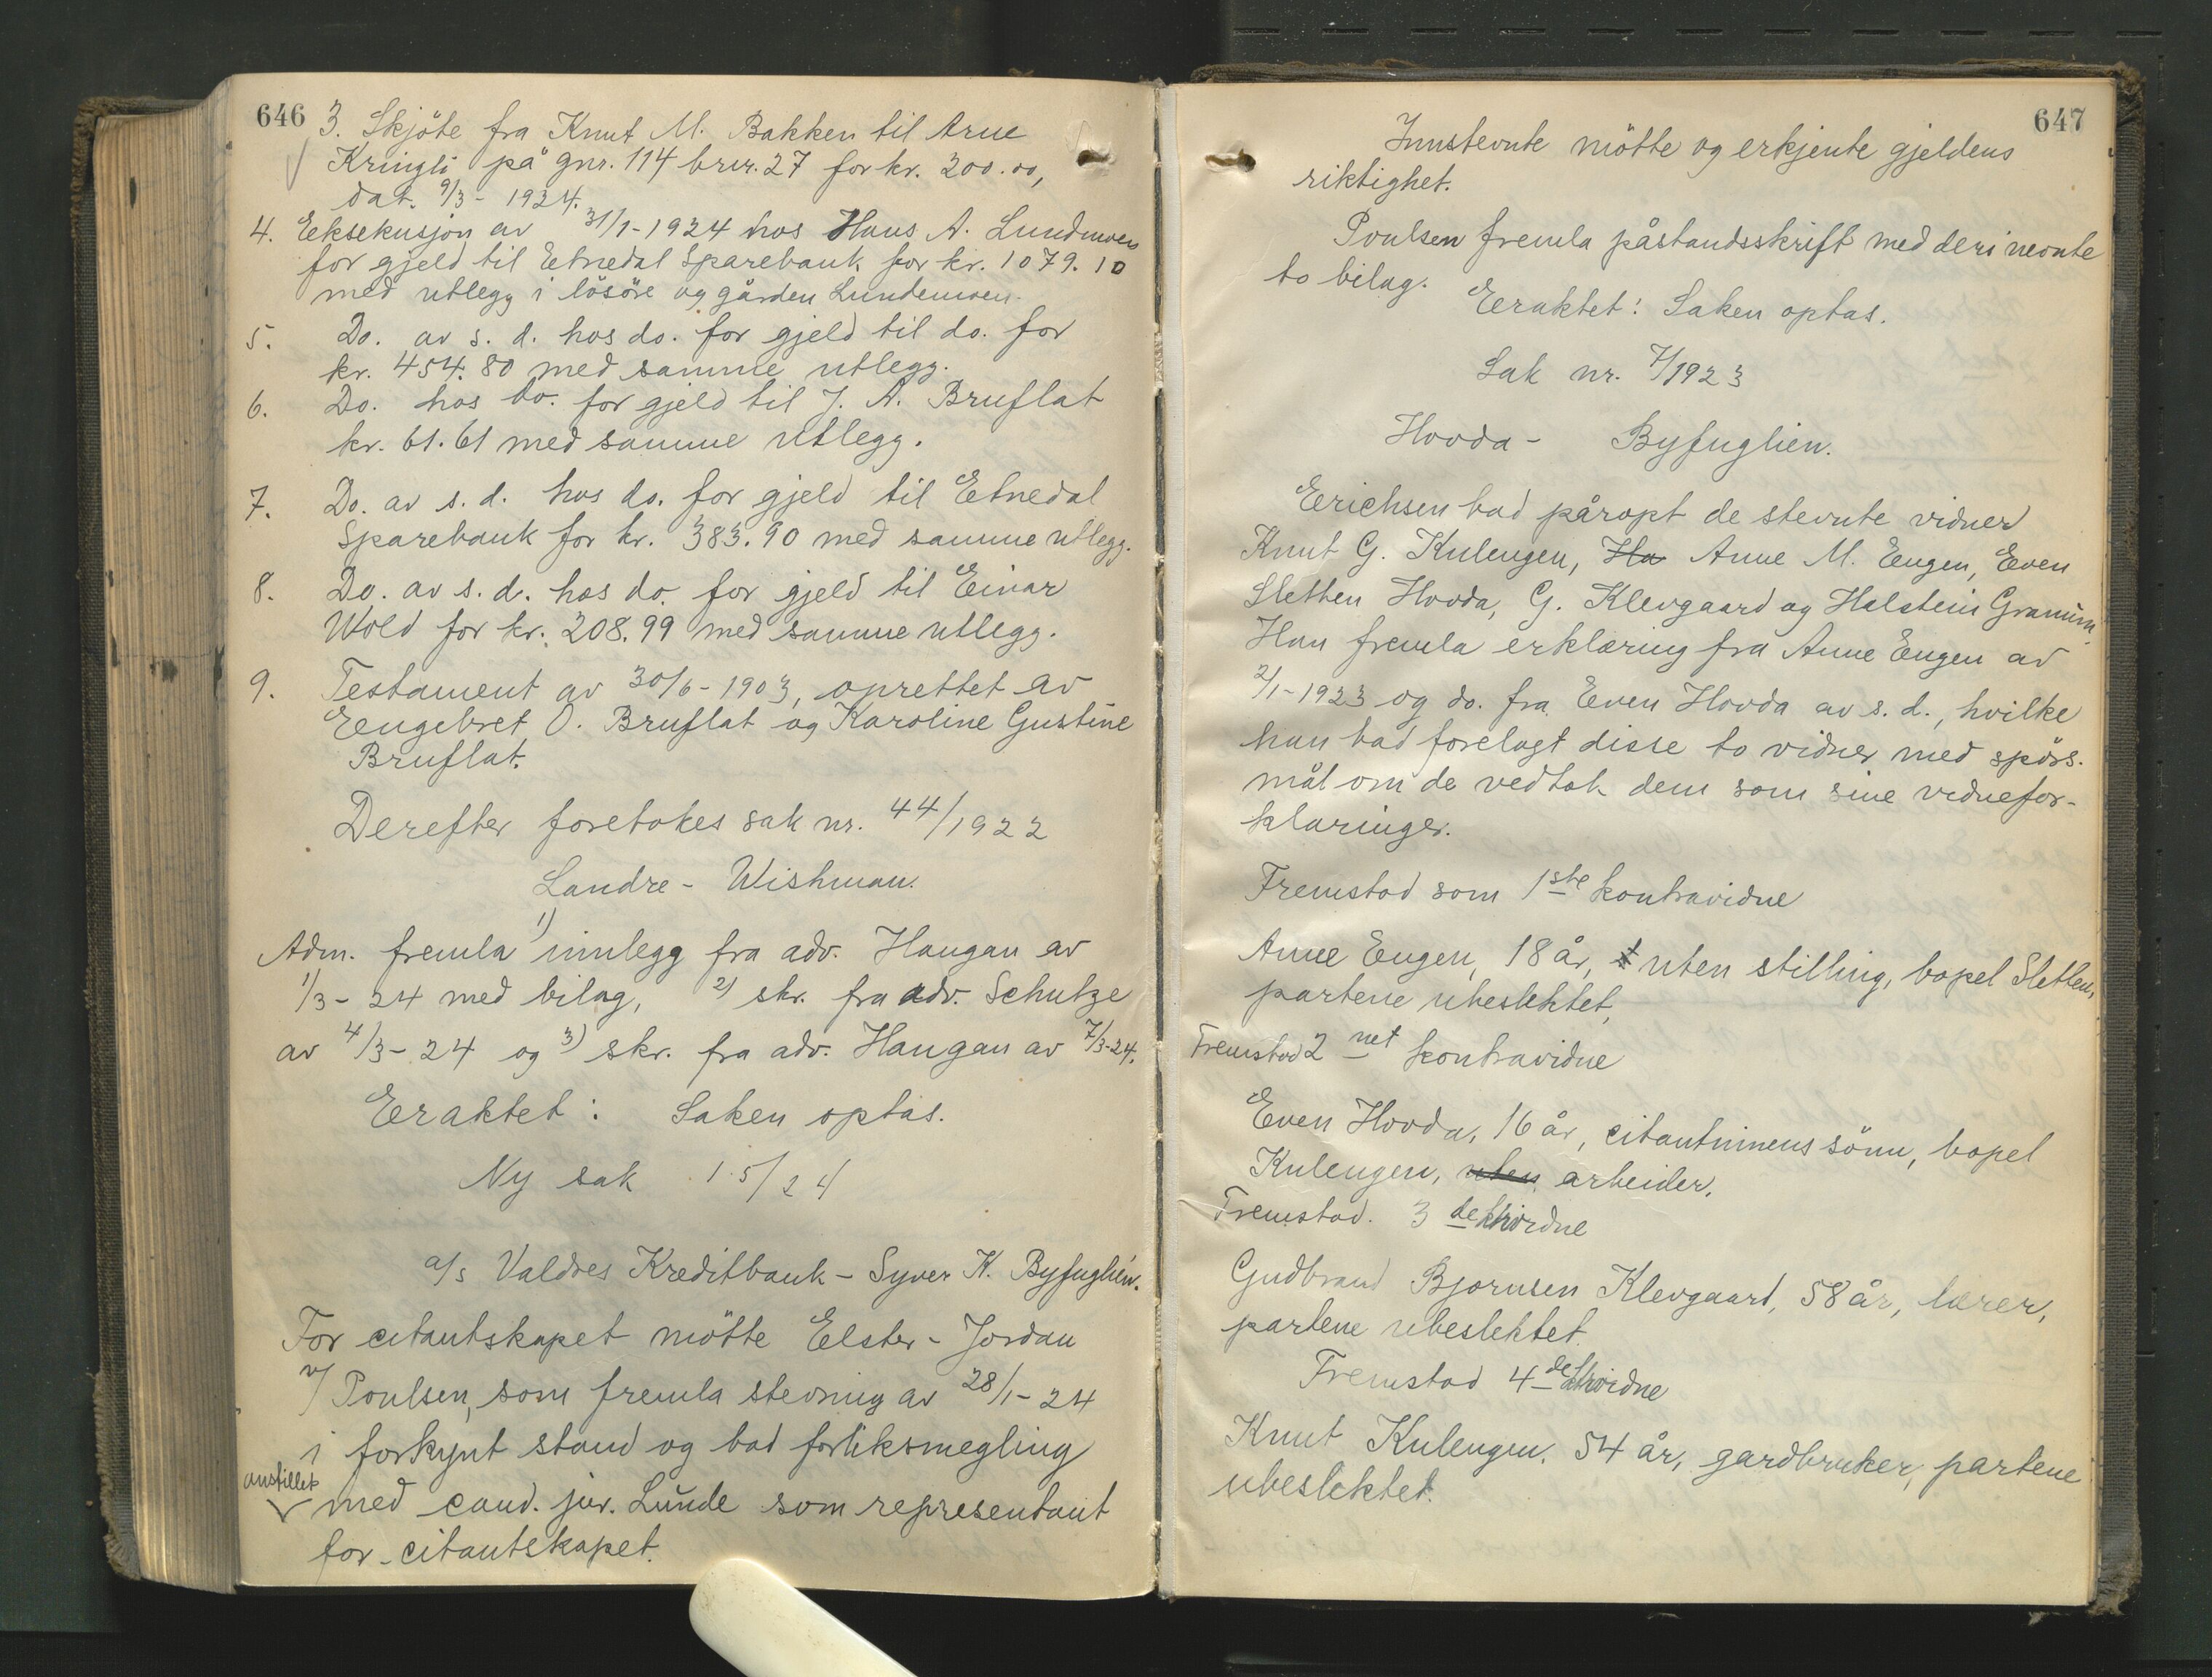 646
3. Skjöte fra Knut M. Bakken til Arne
Kringli på gnr. 114 brnr. 27 for kr. 200.00,
dat. 9/3 - 1924.
4. Eksekusjon av 31/1-1924 hos Hans A. Lundmoen
for gjeld til Etnedal Sparebank for kr. 1079.10
med utlegg i lösöre og gården Lundemoen.
5. Do. av s. d. hos do. for gjeld til do. for
kr. 454.80 med samme utlegg.
6. Do. hos do. for gjeld til J. A. Bruflat
kr. 61.61 med samme utlegg.
7. Do. av s. d. hos do. for gjeld til Etnedal
Sparebank for kr. 383.90 med samme utlegg.
8. Do. av s. d. hos do. for gjeld til Einar
Wold for kr. 208.99 med samme utlegg.
9. Testament av 30/6-1903, oprettet av
Engebret O. Bruflat og Karoline Gustine
Bruflat.
Derefter foretokes sak nr. 44/1922
Landre - Wishman.
Adm. fremla 1) innlegg fra adv. Haugan av
1/3-24 med bilag, 2) skr. fra adv. Schutze
av 4/3-24 og 3) skr. fra adv. Haugan av 7/3-24.
Eraktet: Saken optas.
Ny sak 15/24
a/s Valdres Kreditbank - Syver K. Byfuglien.
For citantskapet mötte Elster-Jordan
v/ Poulsen, som fremla stevning av 28/1-24
i forkynt stand og bad forliksmegling
anstillet
med cand. jur. Lunde som representant
for citantskapet.
647
Innstevnte mötte og erkjente gjeldens
riktighet.
Poulsen fremla påstandsskrift med deri nevnte
to bilag.
Eraktet: Saken optas.
Sak nr. 7/1923
Hovda - Byfuglien.
Erichsen bad påropt de stevnte vidner
Knut G. Kulengen, Ha Anne M. Engen, Even
Sletten Hovda, G. Klevgaard og Halstein Granum.
Han fremla erklæring fra Anne Engen av
2/1-1923 og do. fra Even Hovda av s. d., hvilke
han bad forelagt disse to vidner med spörs-
mål om de vedtok dem som sine vidnefor-
klaringer.
Fremstod som 1ste kontravidne
Anne Engen, 18 år, uten stilling, bopel Sletten,
partene ubeslektet,
Fremstod 2net kontravidne
Even Hovda, 16 år, citantinnens sönn, bopel
Kulengen, uten arbeider.
Fremstod. 3de ktrvidne
Gudbrand Bjornsen Klevgaard, 58 år, lærer,
partene ubeslektet.
Fremstod 4de ktrvidne
Knut Kulengen. 54 år, gardbruker, partene
ubeslektet.